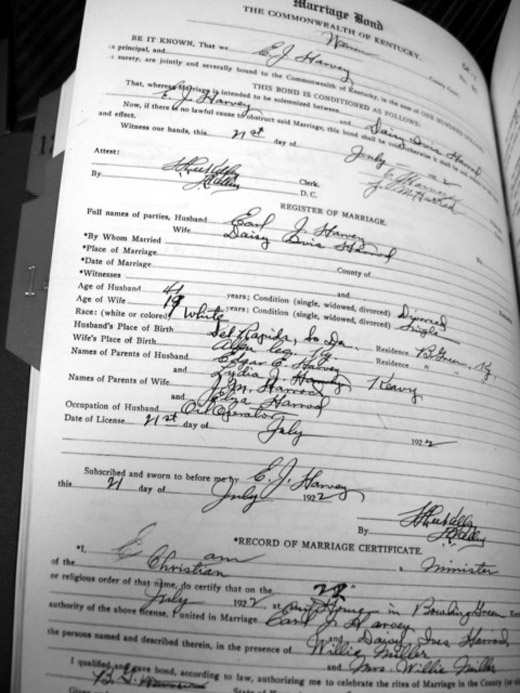 Marriage Bond
THE COMMONWEALTH OF KENTUCKY.
BE IT KNOWN, That we E. J. Harvey
as principal, and County Court
as surety, are jointly and severally bound to the Commonwealth of Kentucky, in the sum of ONE HUNDRED
THIS BOND IS CONDITIONED AS FOLLOWS:
That, whereas Marriage is intended to be solemnized between
E. J. Harvey and Daisy Inis Harrod
Now, if there is no lawful cause to obstruct said Marriage, this bond shall be void, otherwise it shall be
and effect.
Witness our hands, this 21st day of July 1922
E. J. Harvey
Attest:
Clerk.
By D. C.
REGISTER OF MARRIAGE.
Full names of parties, Husband Earl J. Harvey
Wife Daisy Inis Harrod
*By Whom Married
*Place of Marriage County of
*Date of Marriage
*Witnesses and
Age of Husband 41 years; Condition (single, widowed, divorced) Divorced
Age of Wife 19 years; Condition (single, widowed, divorced) Single
Race: (white or colored) White
Husband's Place of Birth So. Da. Residence B. Green, Ky.
Wife's Place of Birth Allen Co. Ky. Residence " "
Names of Parents of Husband Edgar E. Harvey
and Lydia J. Harvey
Names of Parents of Wife J. M. Harrod
and Harrod
Occupation of Husband Oil Operator
Date of License 21st day of July 1922
Subscribed and sworn to before me by E. J. Harvey
this 21 day of July 1922
By
*RECORD OF MARRIAGE CERTIFICATE.
*I, a minister
of the Christian
or religious order of that name, do certify that on the
July 1922 at in Bowling Green
authority of the above license, I united in Marriage Earl J. Harvey
and Daisy Ines Harrod
the persons named and described therein, in the presence of Willie Miller
and Mrs. Willie Miller
I qualified and gave bond, according to law, authorizing me to celebrate the rites of Marriage in the County (or